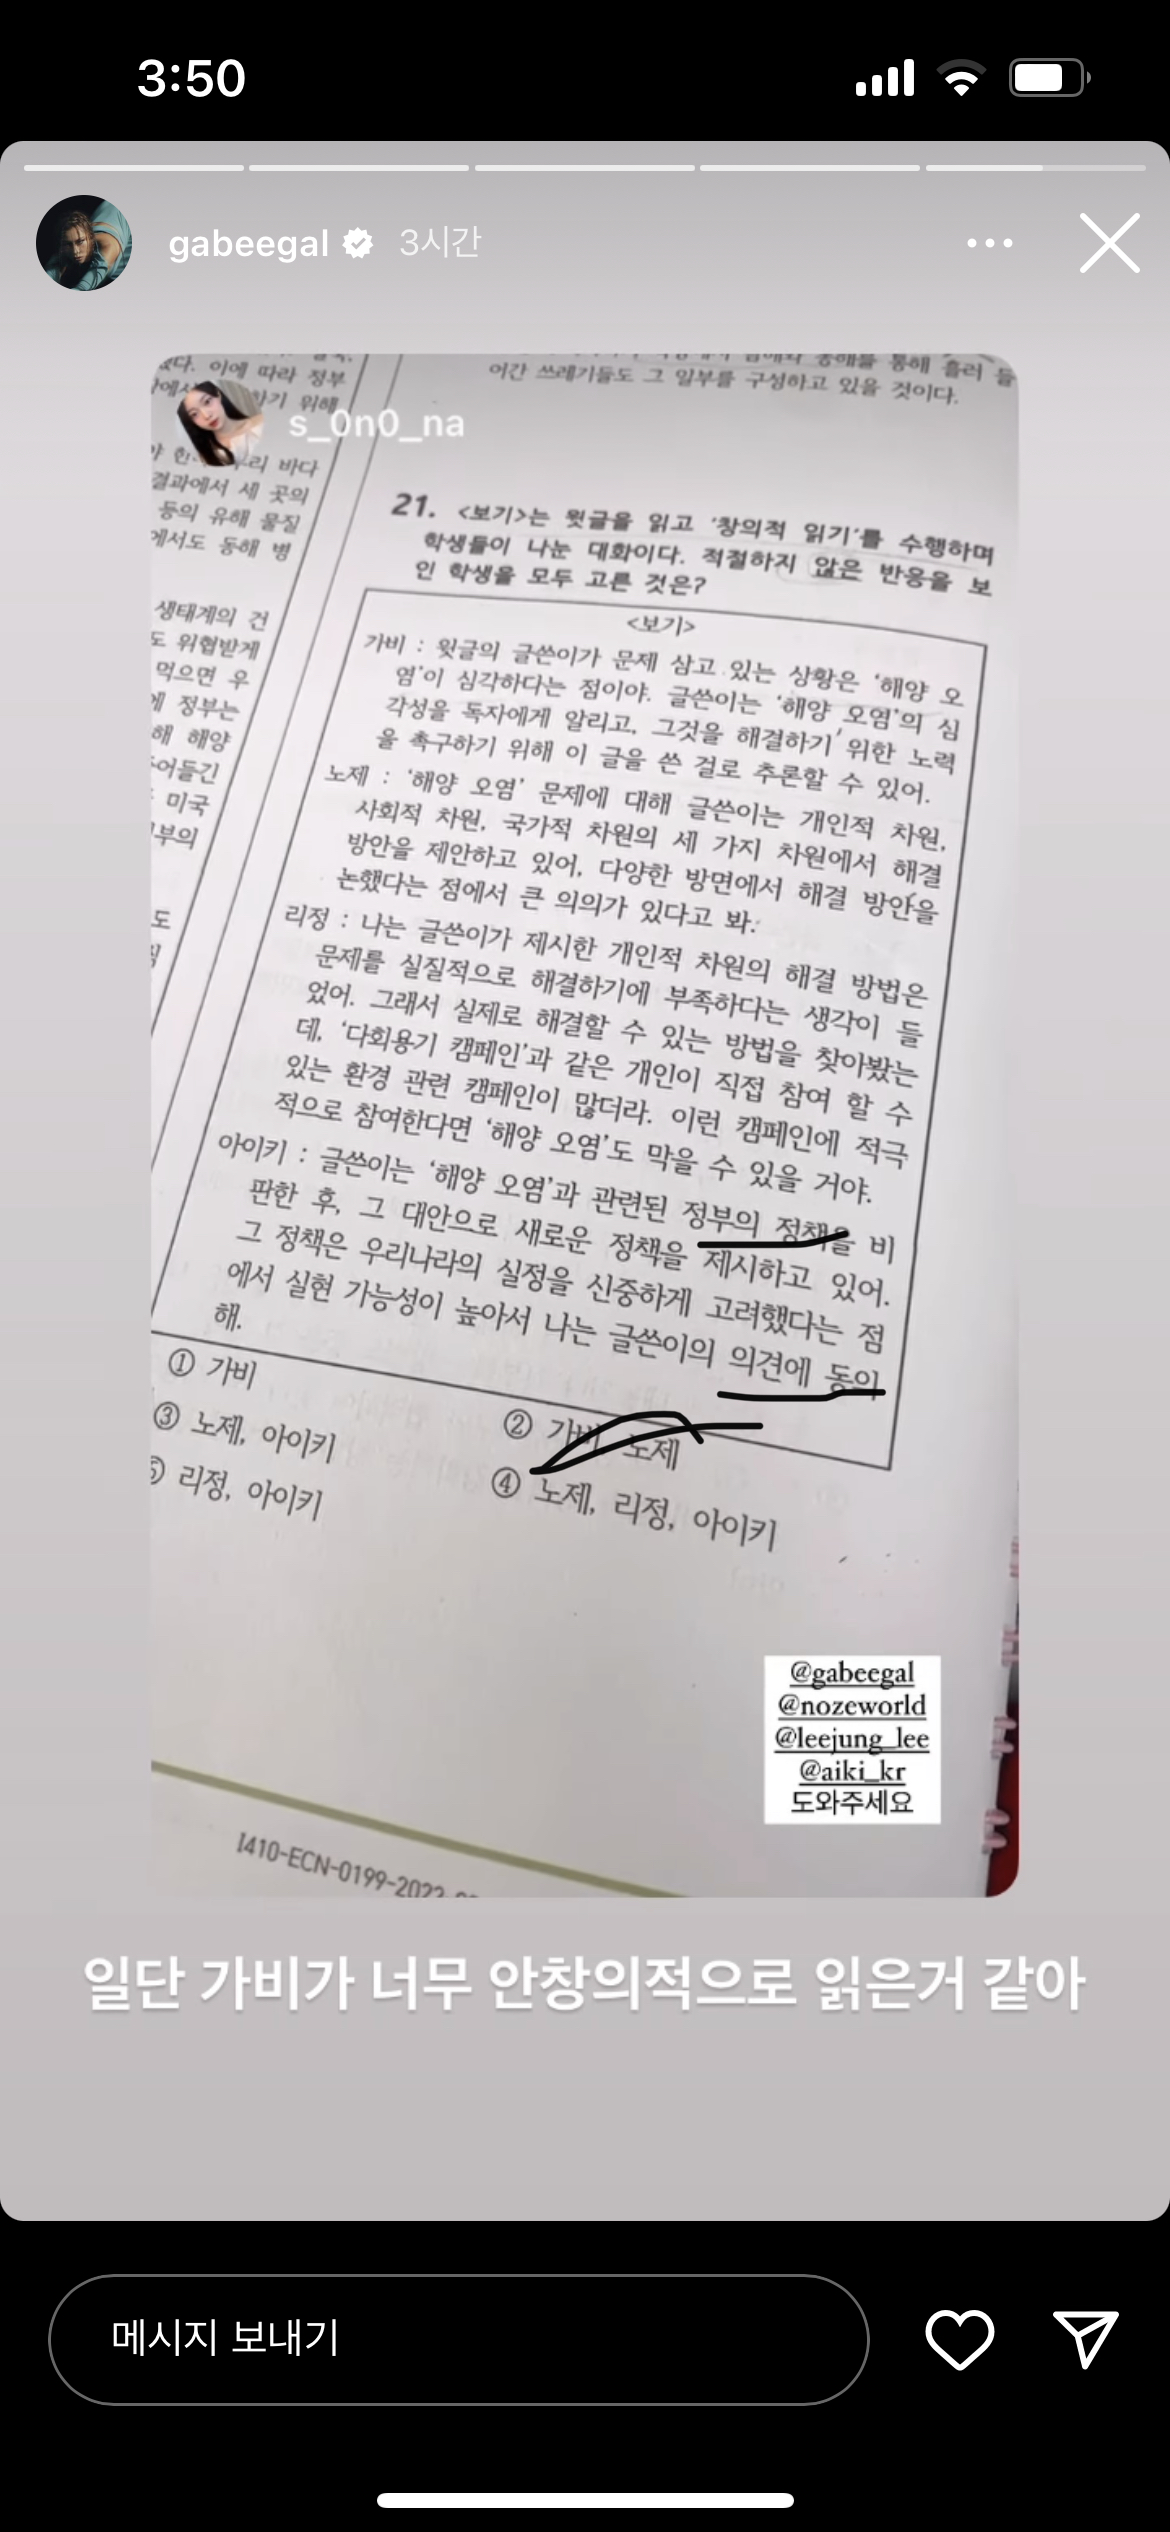 3:50
gabeegal 3시간
다. 이에 따라 정부
하기 위해
어간 쓰레기들도 그 일부를 구성하고 있을 것이다.
s_0n0_na
우리 바다
결과에서 세 곳의
등의 유해 물질
에서도 동해 병
생태계의 건
도 위협받게
먹으면 우
정부는
해 해양
어들긴
미국
부의
도
21. <보기>는 윗글을 읽고 '창의적 읽기'를 수행하며
학생들이 나눈 대화이다. 적절하지 않은 반응을 보
인 학생을 모두 고른 것은?
<보기>
가비 : 윗글의 글쓴이가 문제 삼고 있는 상황은 '해양 오
염'이 심각하다는 점이야. 글쓴이는 '해양 오염'의 심
각성을 독자에게 알리고, 그것을 해결하기 위한 노력
을 촉구하기 위해 이 글을 쓴 걸로 추론할 수 있어.
노제 : '해양 오염' 문제에 대해 글쓴이는 개인적 차원,
사회적 차원, 국가적 차원의 세 가지 차원에서 해결
방안을 제안하고 있어, 다양한 방면에서 해결 방안을
논했다는 점에서 큰 의의가 있다고 봐.
리정 : 나는 글쓴이가 제시한 개인적 차원의 해결 방법은
문제를 실질적으로 해결하기에 부족하다는 생각이 들
었어. 그래서 실제로 해결할 수 있는 방법을 찾아봤는
데, '다회용기 캠페인'과 같은 개인이 직접 참여 할 수
있는 환경 관련 캠페인이 많더라. 이런 캠페인에 적극
적으로 참여한다면 '해양 오염'도 막을 수 있을 거야.
아이키 : 글쓴이는 '해양 오염'과 관련된 정부의 정책을 비
판한 후, 그 대안으로 새로운 정책을 제시하고 있어.
그 정책은 우리나라의 실정을 신중하게 고려했다는 점
에서 실현 가능성이 높아서 나는 글쓴이의 의견에 동의
해.
① 가비
② 가비, 노제
③ 노제, 아이키
④ 노제, 리정, 아이키
⑤ 리정, 아이키
@gabeegal
@nozeworld
@leejung_lee
@aiki_kr
도와주세요
I410-ECN-0199-2022
일단 가비가 너무 안창의적으로 읽은거 같아
메시지 보내기